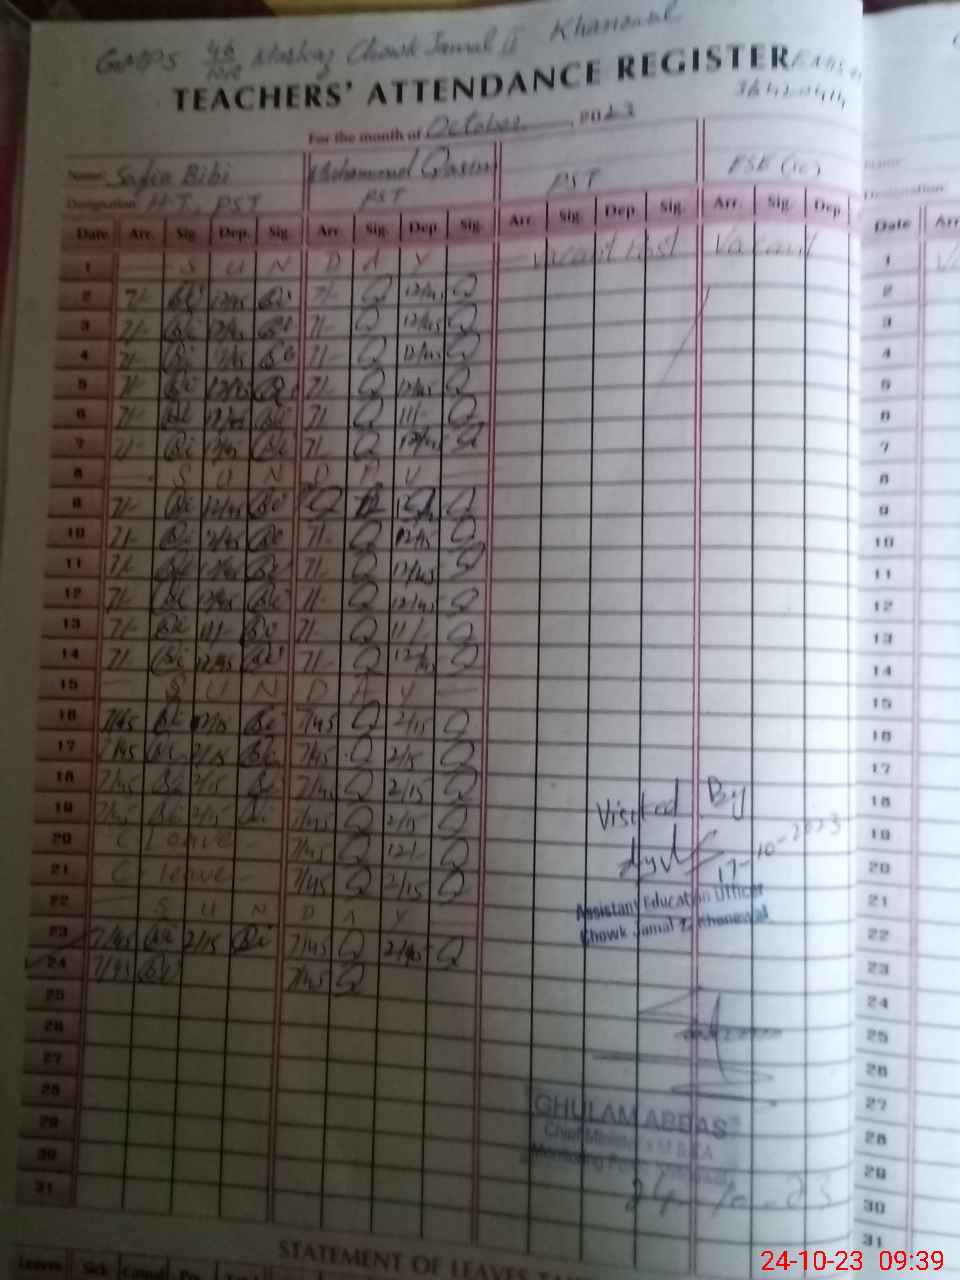 GMPS 46/10R Markaz Chowk Jamal II Khanewal
TEACHERS' ATTENDANCE REGISTER
36420414
For the month of October 2023
Name Safia Bibi Muhammad Qasim
Designation H-T, PST PST PST ESE (sc)
Date Arr. Sig. Dep. Sig. Arr. Sig. Dep Sig. Arr. Sig. Dep. Sig. Arr. Sig. Dep Date Arr
1 — S U N D A Y — Vacant Post Vacant 1
2 7/- Bi 12/45 Bi 7/- Q 12/45 Q 2
3 7/- Bi 12/45 Bi 7/- Q 12/45 Q 3
4 7/- Bi 12/45 Bi 7/- Q 12/45 Q 4
5 7/- Bi 12/45 Bi 7/- Q 12/45 Q 5
6 7/- Bi 12/45 Bi 7/- Q 11/- Q 6
7 7/- Bi 12/45 Bi 7/- Q 12/45 Q 7
8 — S U N D A Y — 8
9 7/- Bi 12/45 Bi Q Q 9
10 7/- Bi 12/45 Bi 7/- Q 12/45 Q 10
11 7/- Bi 12/45 Bi 7/- Q 12/45 Q 11
12 7/- Bi 12/45 Bi 7/- Q 12/45 Q 12
13 7/- Bi 11/- Bi 7/- Q 11/- Q 13
14 7/- Bi 12/45 Bi 7/- Q 12/45 Q 14
15 — S U N D A Y — 15
16 7/45 Bi 2/15 Bi 7/45 Q 2/15 Q 16
17 7/45 Bi 2/15 Bi 7/45 Q 2/15 Q 17
18 7/45 Bi 2/15 Bi 7/45 Q 2/15 Q 18
19 7/45 Bi 2/15 Bi 7/45 Q 2/15 Q Visited By 19
20 C Leave - 7/45 Q 12/- Q 17-10-2023 20
21 C - leave - 7/45 Q 2/15 Q Assistant Education Officer 21
22 — S U N D A Y Chowk Jamal Khanewal 22
23 7/45 Bi 2/15 Bi 7/45 Q 2/45 Q 23
24 7/45 Bi 7/45 Q 24
25 25
26 26
27 27
28 GHULAM ABBAS 28
29 Chief Minister's 29
30 Monitoring 30
31 24-10-23 31
STATEMENT OF LEAVES
Leaves Sick Casual
24-10-23 09:39